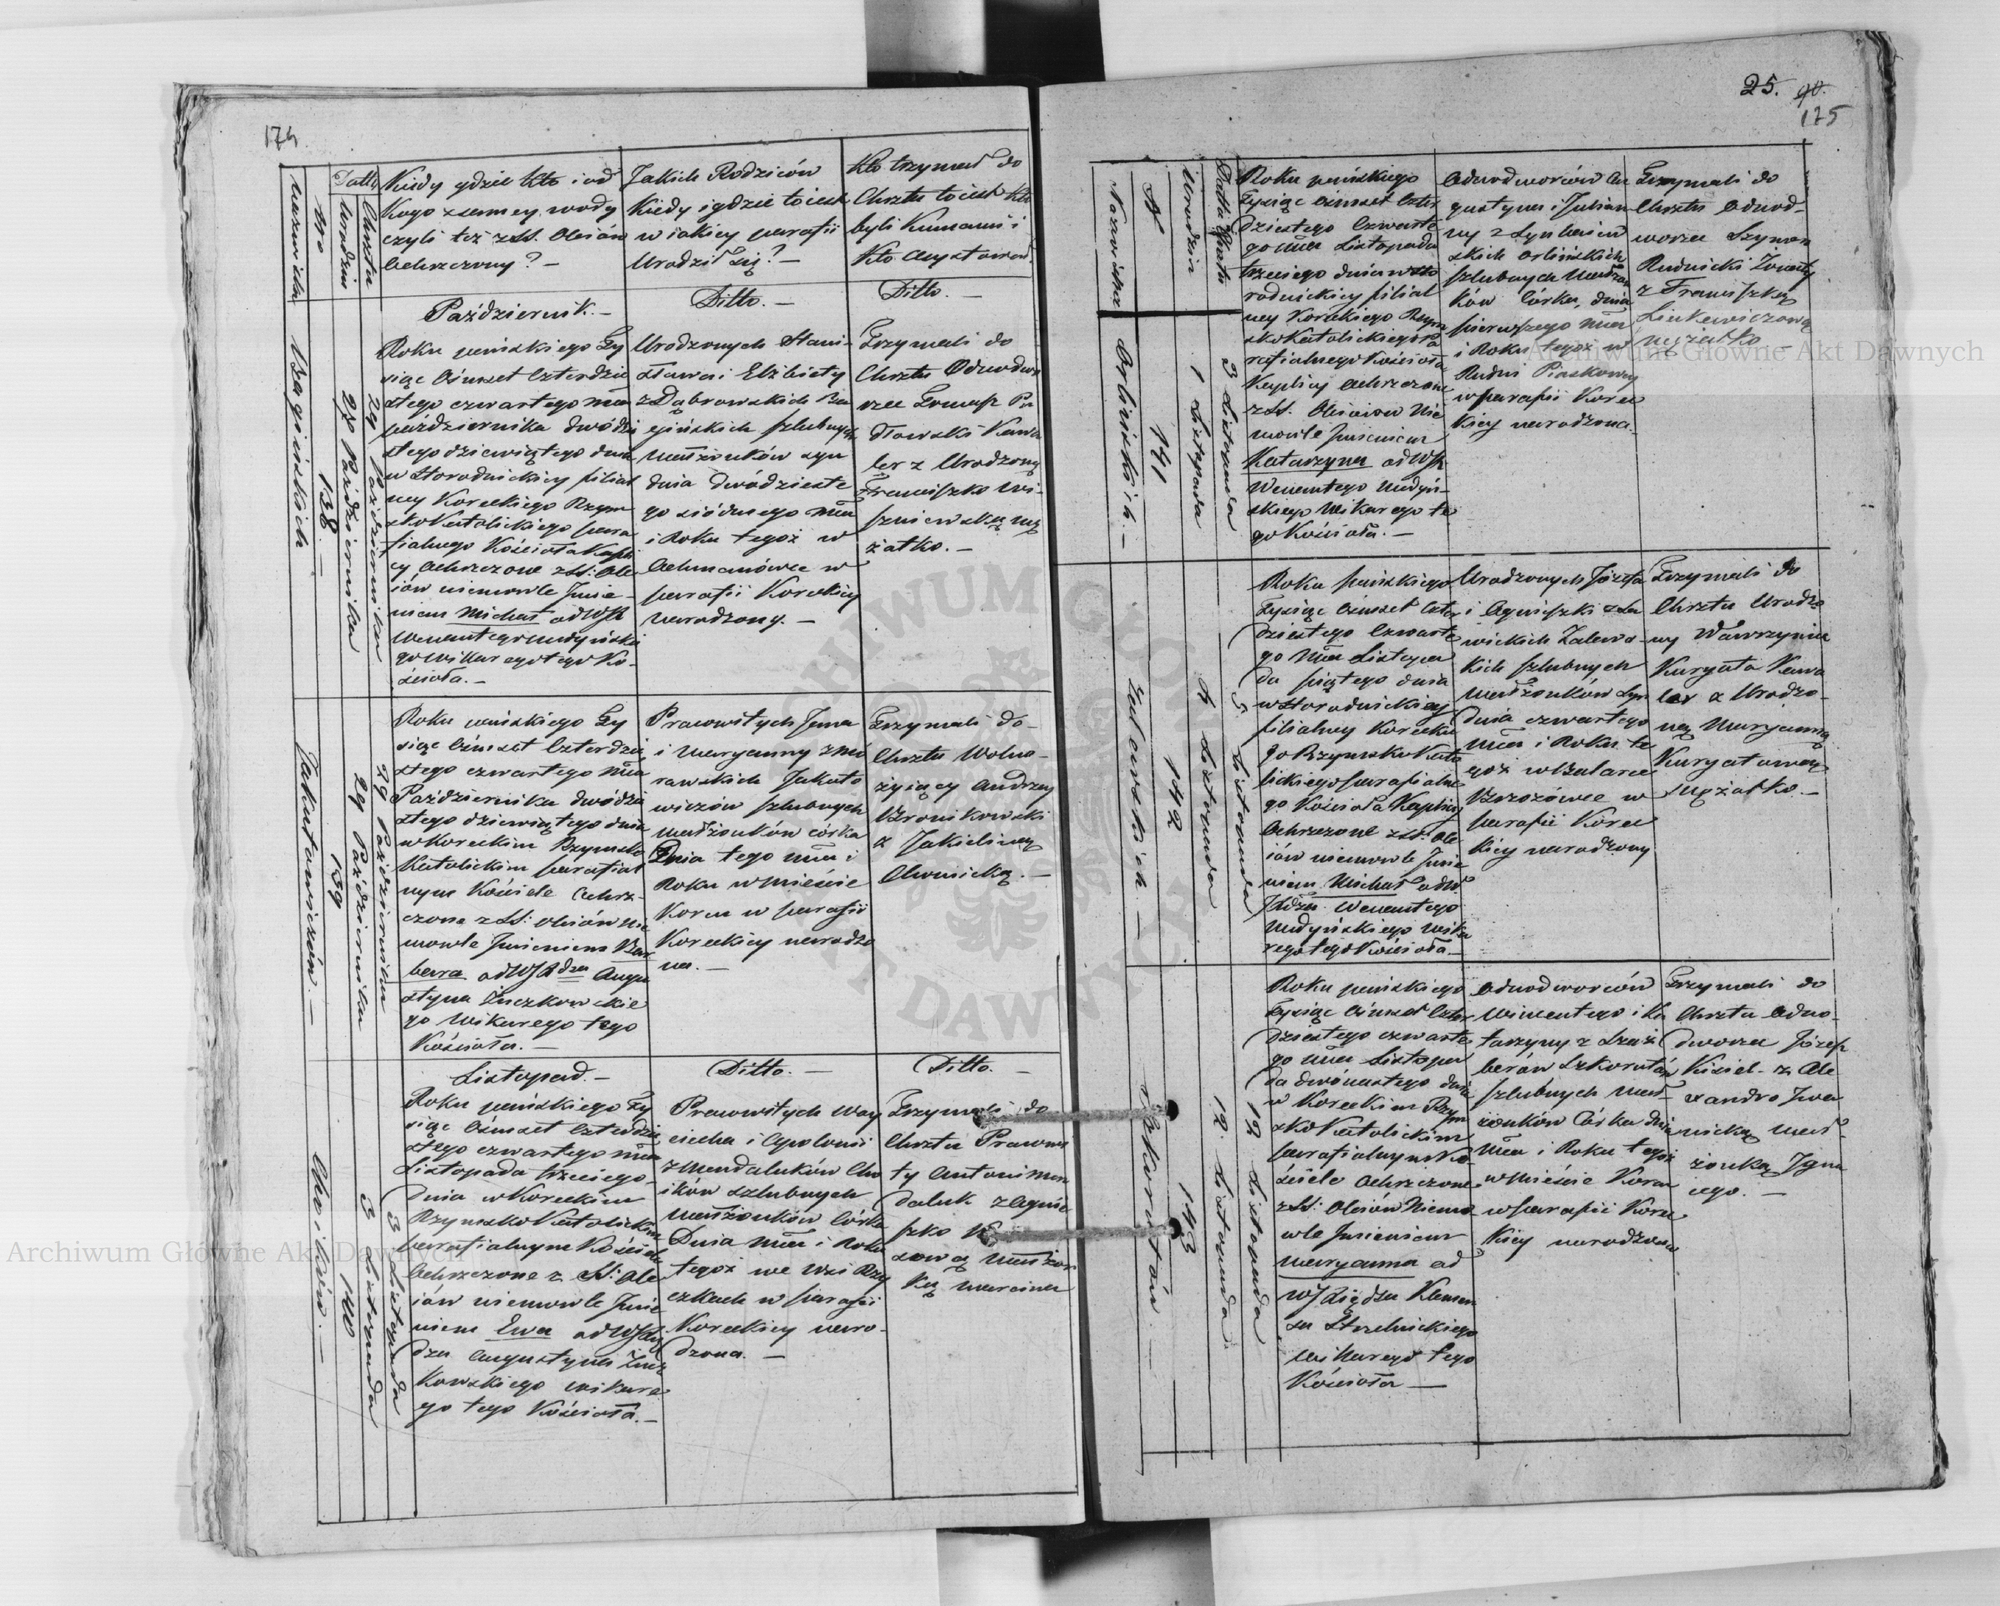 174
Nazwiska
Nro
Datta
Urodzin
Chrztu
Kiedy gdzie kto i od
Kogo z samey wody
czyli też z SS. Olejów
Ochrzczony? —
Jakich Rodziców
Kiedy i gdzie to jest
w jakiey parafii
Urodził się? —
Kto trzymał do
Chrztu to jest kto
byli Kumami i
Kto Assystował
Październik. —
Ditto. —
Ditto. —
138. —
27 Października
29 Października
Roku pańskiego Ty
siąc Ośmset Czterdzie
stego czwartego mca
października dwudzie
stego dziewiątego dnia
w Horodnickiey filial
ney Koreckiego Rzym
sko Katolickiego para
fialnego Kościoła Kapli
cy Ochrzczone z SS: Ole
jów niemowle Imie
niem Michał od WJX
Wincentego
go Wikarego tego Ko-
ścioła. —
Urodzonych Stani-
sława i Elżbiety
z Dąbrowskich
szlubnych
małżonków syn
dnia dwódzieste
go siódmego mca
i Roku tegoż w
w
parafii Koreckiey
narodzony. —
Trzymali do
Chrztu Odnodwo
rzec Tomasz Pa
włowski Kawa
ler z Urodzoną
Franciszką Wi-
szniewską mę
żatką. —
Jakutowiczów. —
139
29 Października
29 Października
Roku pańskiego Ty
siąc Ośmset Czterdzie
stego czwartego mca
Października dwódzie
stego dziewiątego dnia
w Koreckim Rzymsko
Katolickim parafial
nym Kościele Ochrz-
czone z SS: Olejów nie
mowle Imieniem Bar
bara od WJXdza Augu
styna Żuczkowskie
go Wikarego tego
Kościoła. —
Pracowitych Jana
i Maryanny z Mo
rawskich Jakuto
wiczów szlubnych
małżonków córka
Dnia tego mca i
Roku w mieście
Korcu w parafii
Koreckiey narodzo
na. —
Trzymali do-
Chrztu Wolno-
żyjący Andrzey
Wronikowski
z Jakieliną
Choinicką. —
Listopad. —
Ditto. —
Ditto. —
140
3 Listopada
3 Listopada
Roku pańskiego Ty
siąc Ośmset Czterdzie
stego czwartego mca
Listopada trzeciego
dnia w Koreckim
Rzymsko Katolickim
parafialnym Kościele
Ochrzczone z SS: Ole
jów niemowle Imie
niem Ewa od WJXię
dza Augustyna Żucz
kowskiego wikare
go tego Kościoła. —
Pracowitych Woy
ciecha i Apolonii
z Mendaluków Cho
ików szlubnych
małżonków Córka
Dnia mca i Roku
tegoż we Wsi Rzy
czkach w parafii
Koreckiey naro-
dzona. —
Trzymali do
Chrztu Pracowi
ty Antoni Men
daluk z Agnie
szką
sową małżon
ką Marcina
25. 90.
175
Nazwiska
N
Urodzin
Datta Chrztu
Orlińskich. —
141
1 Listopada
3 Listopada
Roku pańskiego
Tysiąc Ośmset Czter
dziestego Czwarte
go mca Listopada
trzeciego dnia w Ho
rodnickiey filial
ney Koreckiego Rzym
sko Katolickiego Pa
rafialnego Kościoła
Kaplicy Ochrzczone
z SS. Olejów Nie
mowle Imieniem
Katarzyna od WJX
Wincentego
skiego Wikarego te
go Kościoła. —
Odnodworców Au
gustyna i Julian
ny z
skich Orlińskich
szlubnych małżon
ków Córka, dnia
pierwszego mca
i Roku tegoż w
Rudni Piaskowey
w parafii Korec
kiey narodzona. —
Trzymali do
Chrztu Odnod-
worzec Szymon
Rudnicki Żonaty
z Franciszką
Linkiewiczową
mężatką —
Zalewskich. —
142
4 Listopada
5 Listopada
Roku pańskiego
Tysiąc Ośmset Czter
dziestego Czwarte
go mca Listopa
da piątego dnia
w Horodnickiey
filialney Koreckie
go Rzymsko Kato
lickiego parafialne
go Kościoła Kaplicy
Ochrzczone z SS: Ole
jów niemowle Imie
niem Michał od W
JXdza Wincentego
Wika
rego tego Kościoła. —
Urodzonych Józefa
i Agnieszki z Sa
wickich Zalews-
kich szlubnych
małżonków Syn
dnia czwartego
mca i Roku te
goż w
w
parafii Korec
kiey narodzony
Trzymali do
Chrztu Urodzo
ny Wawrzyniec
Kuryata Kawa
ler z Urodzo-
ną Maryanną
Kuryatową
mężatką. —
143
12. Listopada
12 Listopada
Roku pańskiego
Tysiąc Ośmset Czter
dziestego czwarte
go mca Listopa
da dwónastego dnia
w Koreckim Rzym
sko Katolickim
parafialnym Ko-
ściele Ochrzczone
z SS: Olejów Niemo-
wle Imieniem
Maryanna od
WJXiędza Klemen
sa Strzelnickiego
Wikarego tego
Kościoła —
Odnodworców
Wincentego i Ka
tarzyny z
szlubnych mał-
żonków Córka dnia
mca i Roku tegoż
w mieście Korcu
w parafii Korec
kiey narodzona
Trzymali do
Chrztu Odno-
dworzec Józef
Kisiel z Ale
xandrą Iwa
nicką mał-
żonką Igna
cego. —